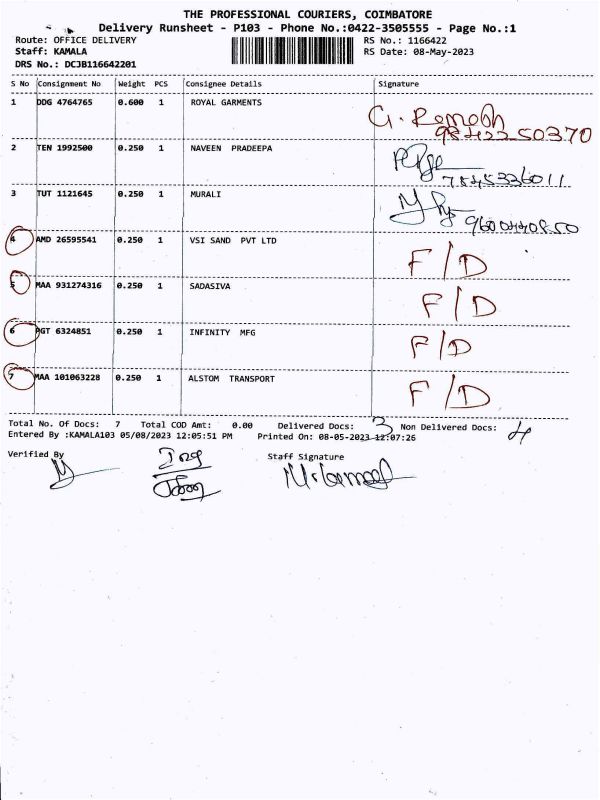 THE PROFESSIONAL COURIERS, COIMBATORE
Delivery Runsheet - P103 - Phone No.:0422-3505555 - Page No.:1
Route: OFFICE DELIVERY RS No.: 1166422
Staff: KAMALA RS Date: 08-May-2023
DRS No.: DCJB116642201
S No Consignment No Weight PCS Consignee Details Signature
1 DDG 4764765 0.600 1 ROYAL GARMENTS
9842250370
2 TEN 1992500 0.250 1 NAVEEN PRADEEPA
7845326011
3 TUT 1121645 0.250 1 MURALI
9600440850
4 AMD 26595541 0.250 1 VSI SAND PVT LTD F/D
5 MAA 931274316 0.250 1 SADASIVA F/D
6 PGT 6324851 0.250 1 INFINITY MFG F/D
7 MAA 101063228 0.250 1 ALSTOM TRANSPORT F/D
Total No. Of Docs: 7 Total COD Amt: 0.00 Delivered Docs: 3 Non Delivered Docs: 4
Entered By :KAMALA103 05/08/2023 12:05:51 PM Printed On: 08-05-2023 12:07:26
Verified By Staff Signature